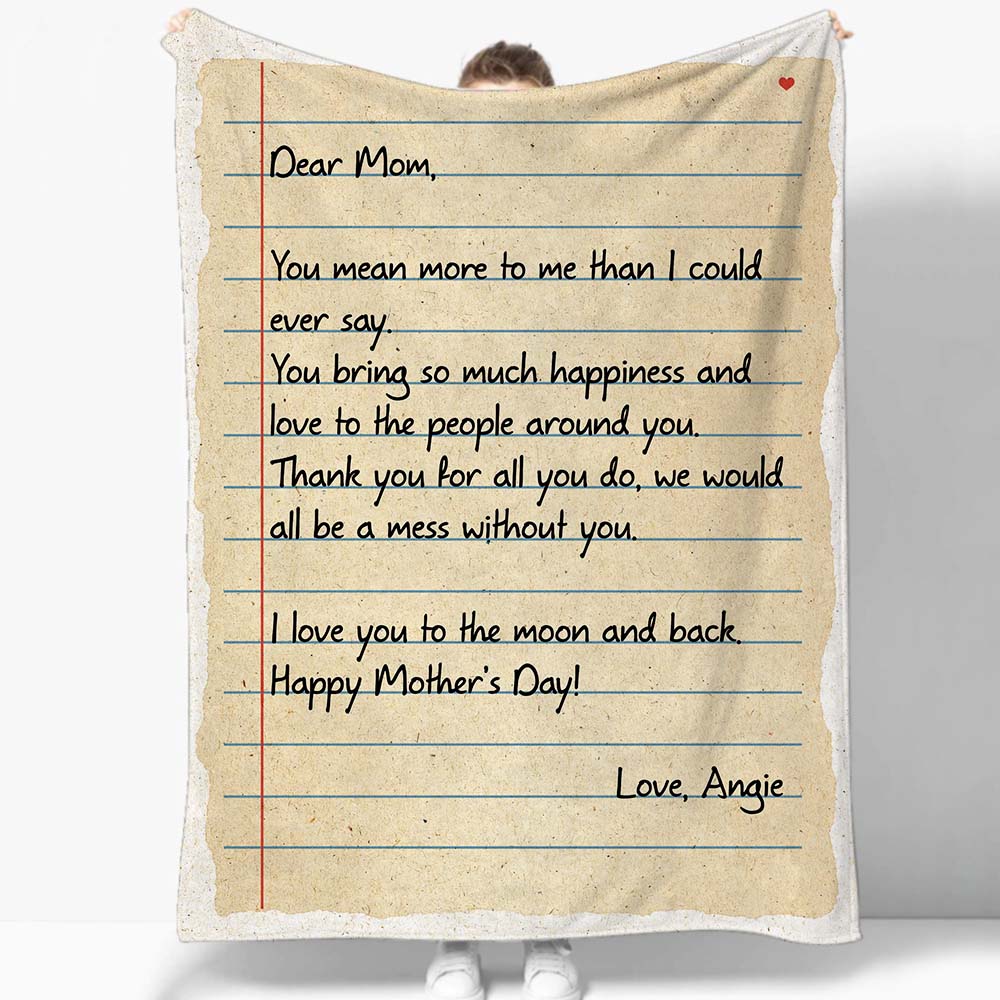 Dear Mom,
You mean more to me than I could
ever say.
You bring so much happiness and
love to the people around you.
Thank you for all you do, we would
all be a mess without you.
I love you to the moon and back.
Happy Mother's Day!
Love, Angie